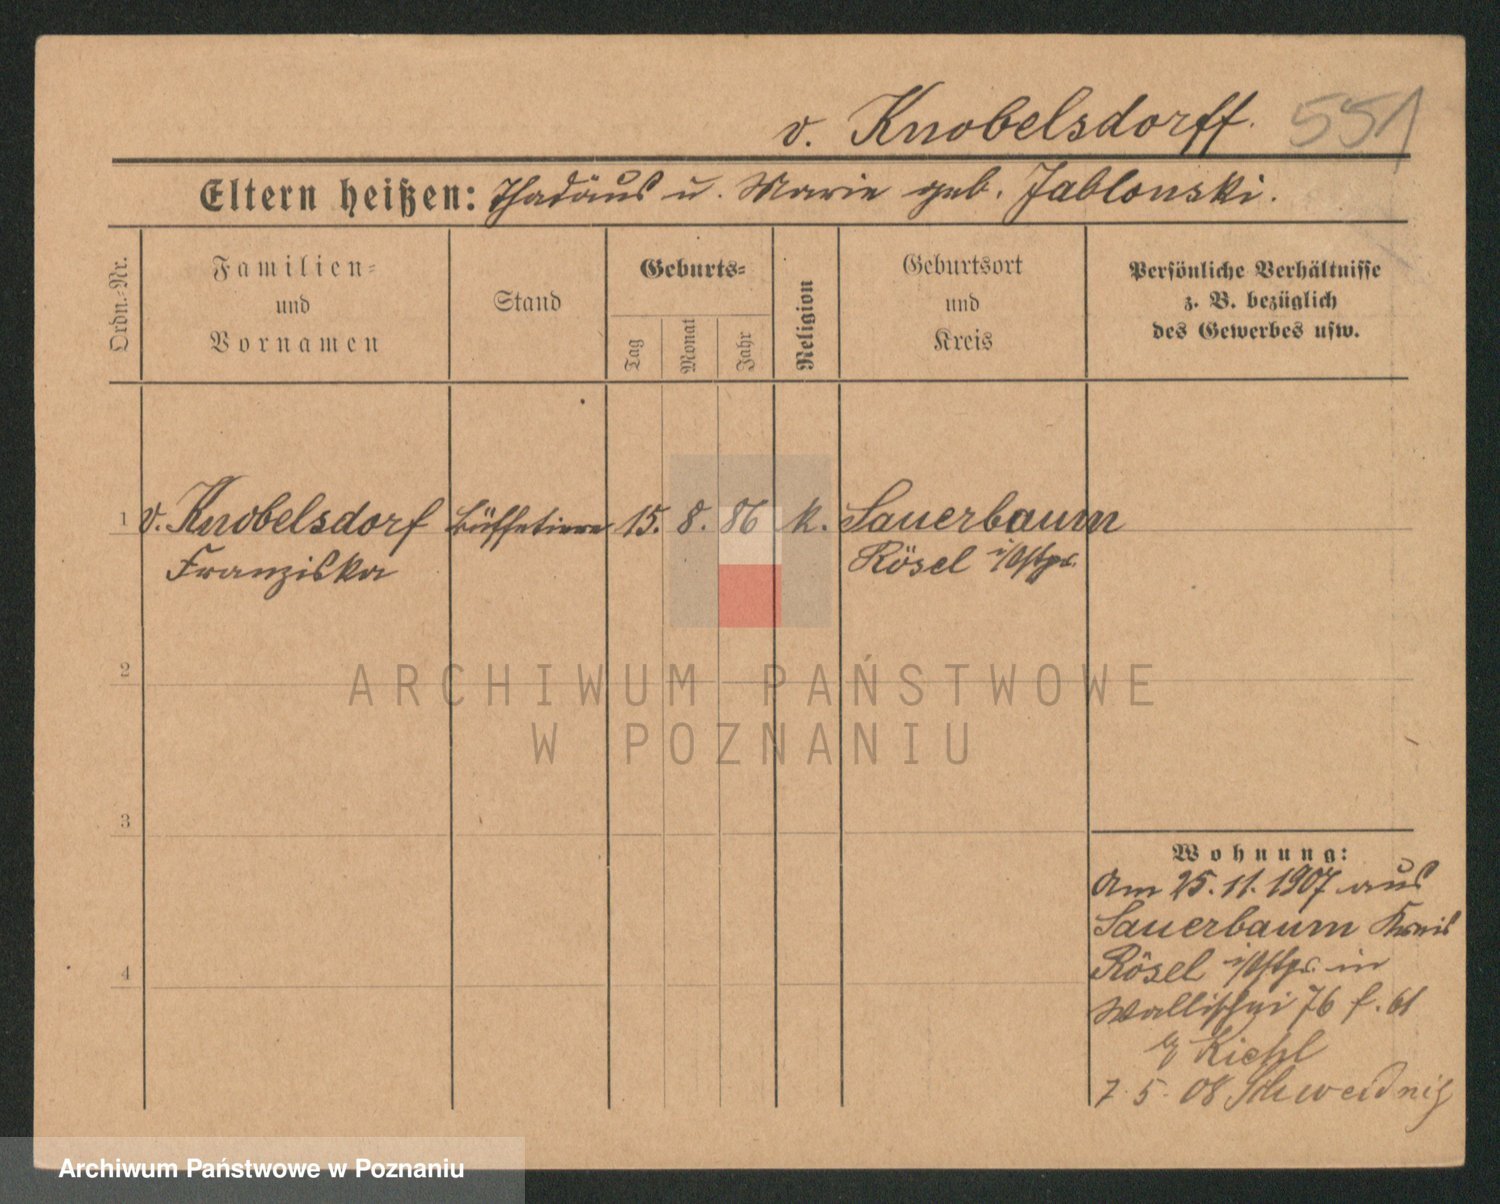 v. Knobelsdorff. 551
Eltern heißen: Thadäus u. Marie geb. Jablonski.
Ordn.-Nr.
Familien-
und
Vornamen
Stand
Geburts-
Tag
Monat
Jahr
Religion
Geburtsort
und
Kreis
Persönliche Verhältnisse
z. B. bezüglich
des Gewerbes usw.
1 v. Knobelsdorf Büffetiere 15. 8. 86 k. Sauerbaum
Franziska Rösel i/Ostpr.
2
ARCHIWUM PAŃSTWOWE
W POZNANIU
3
4
Wohnung:
Am 25.11.1907 aus
Sauerbaum Kreis
Rösel i/Ostpr. in
Wallischei 76
b/ Kiehl
7.5.08 Schweidnig
Archiwum Państwowe w Poznaniu